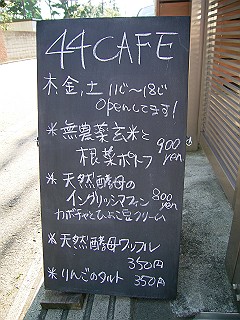 44CAFE
木、金、土 11じ〜18じ
Openしてます!
*無農薬玄米と
根菜ポトフ 900yen
*天然酵母の
イングリッシュマフィン 800yen
カボチャとひよこ豆クリーム
*天然酵母ワッフル
350円
*りんごのタルト 350円